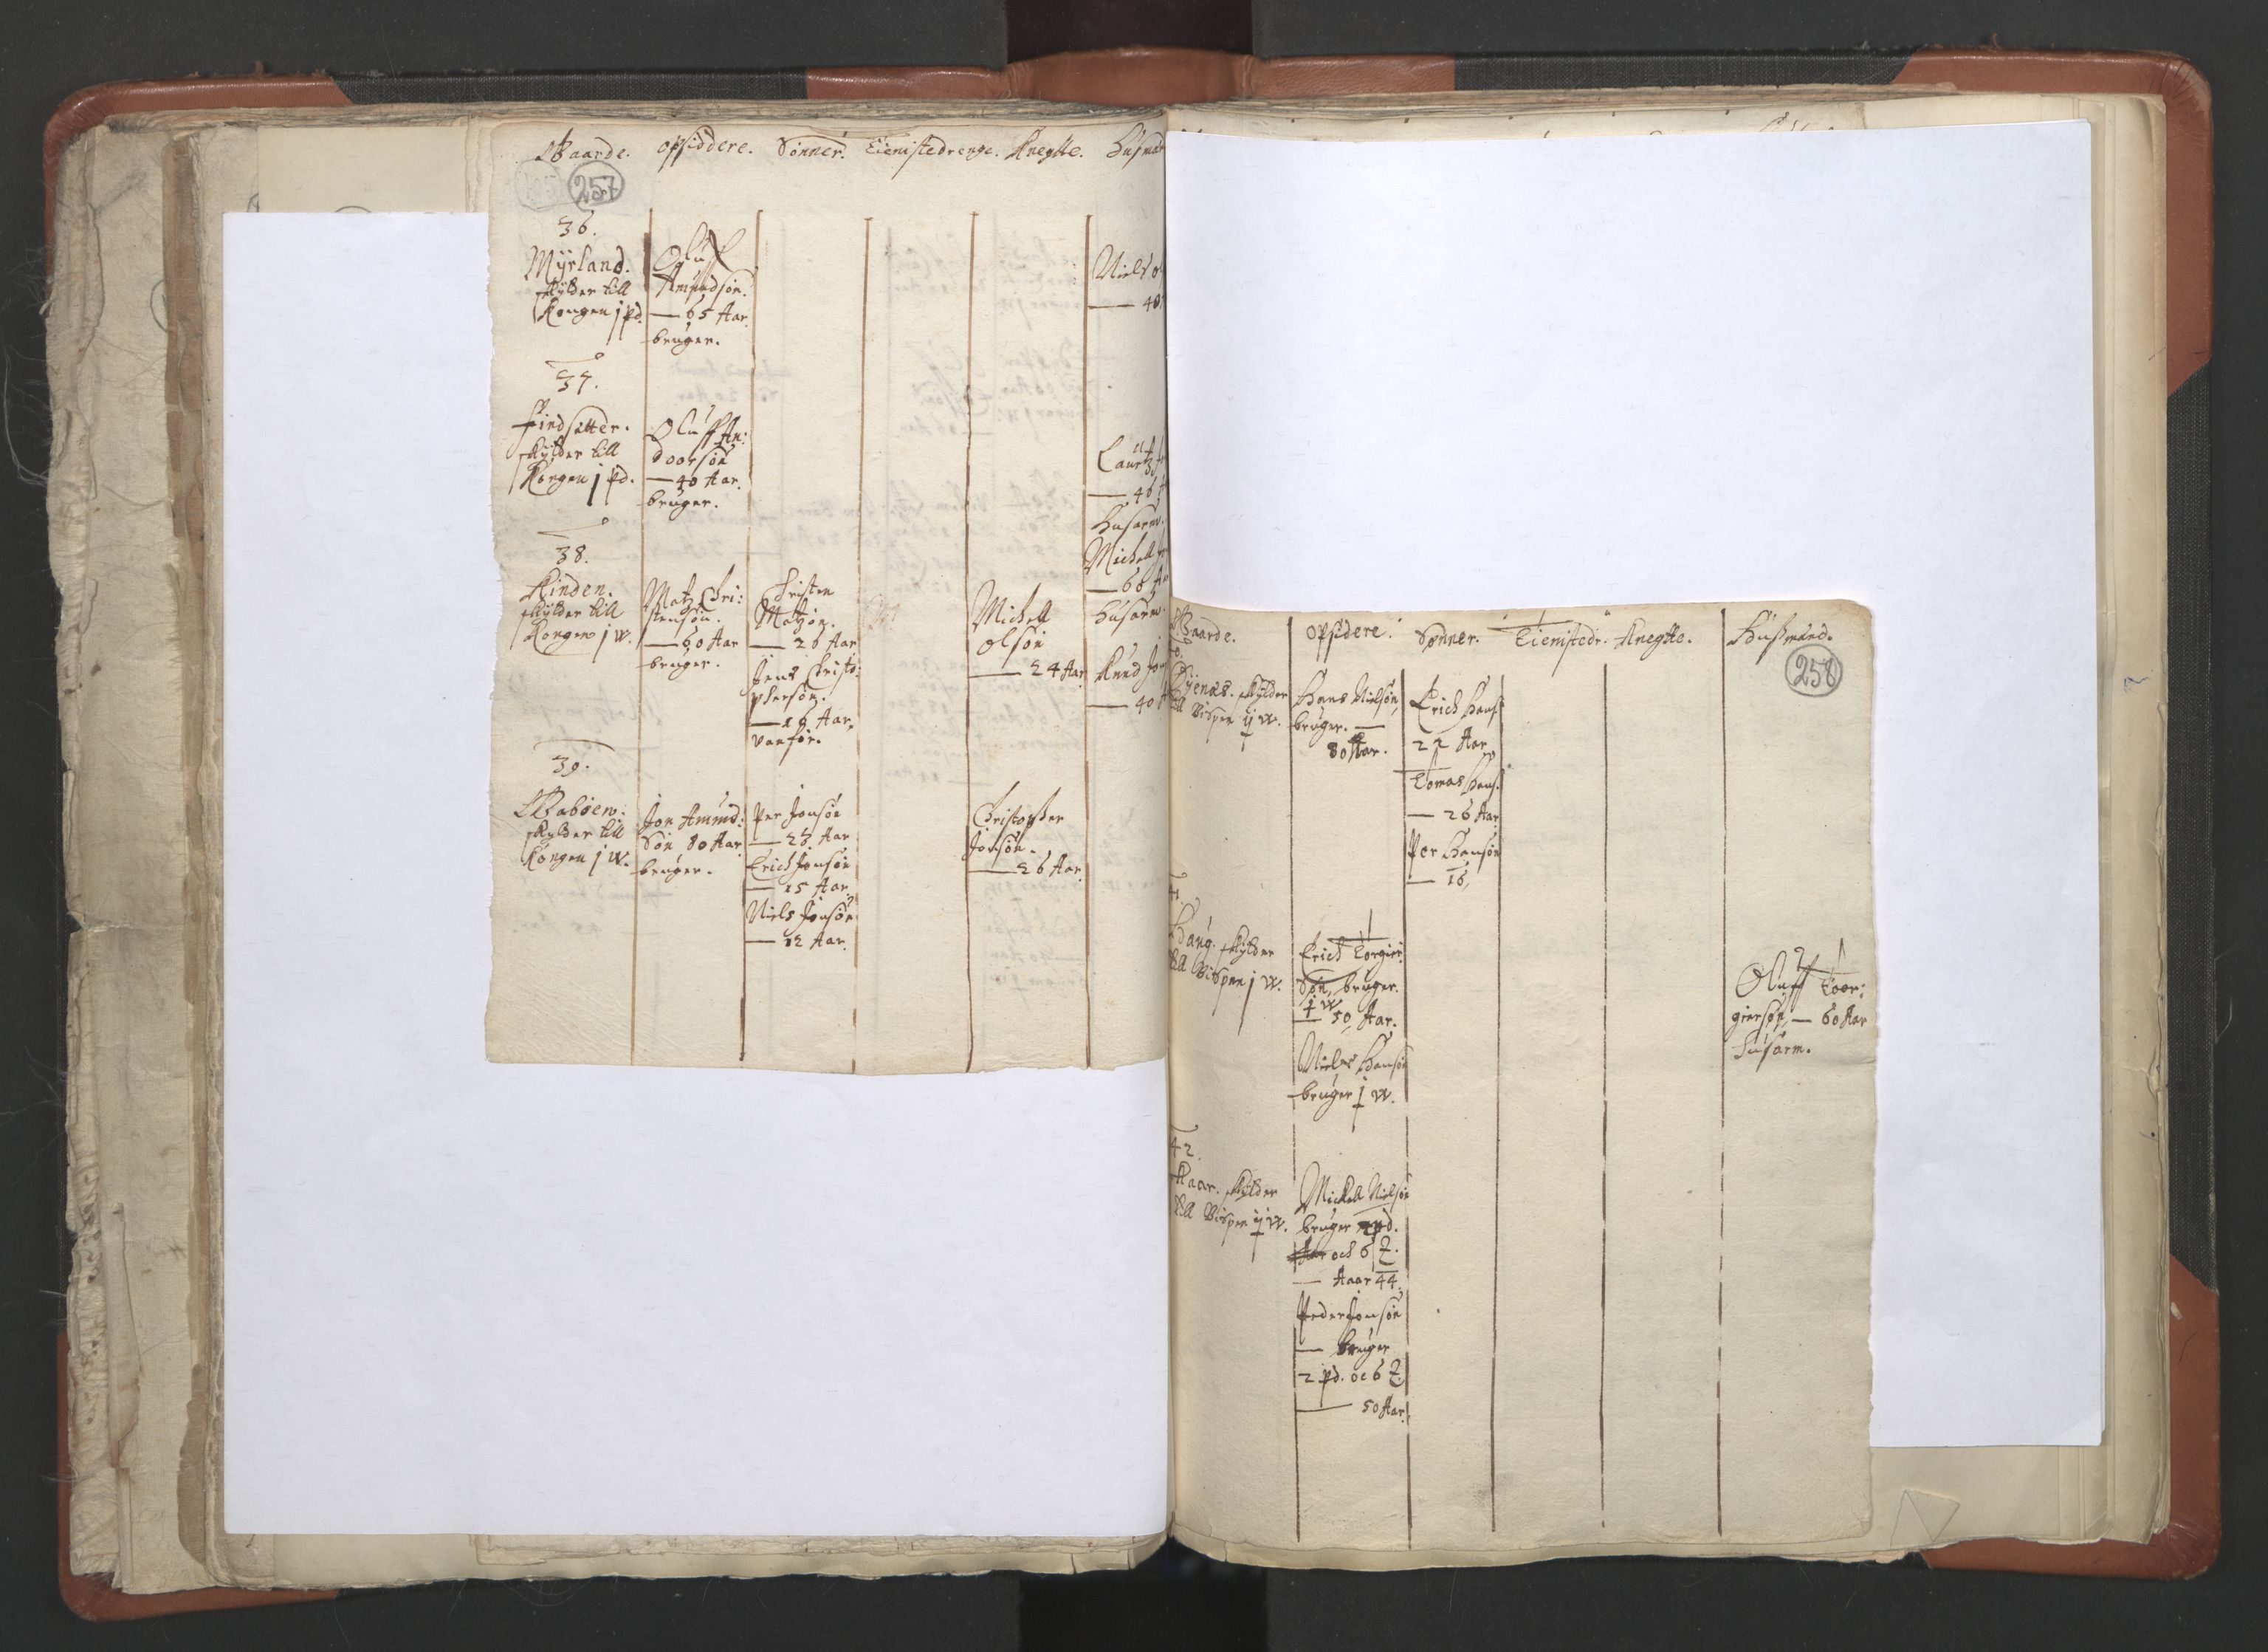 Gaarde. opsiddere. Sønner. Tienistedrenge. Knegtte. Husmæ
257
36.
Myrland.
skylder till
Kongen j pd.
Oluf
Amundsøn.
— 65 Aar.
bruger.
Niels
— 40
37.
Findsætter.
skylder till
Kongen j pd.
Oluff An:
doorsøn
— 40 Aar.
bruger.
Lauritz
— 46
husarm.
Michell
— 60
husarm.
38.
Rinden.
skylder till
Kongen j W.
Matz Chri:
stensøn.
— 60 Aar
bruger.
Christen
Matzøn.
— 26 Aar
Jens Christo:
phersøn.
— 19 Aar.
vanför.
Michell
Olsøn
— 24 Aar.
Knud
— 40
39.
Gabøen.
skylder till
Kongen j W.
Jon Amund:
søn 80 Aar
bruger.
Per Jonsøn
— 28 Aar
Erich Jonsøn
— 15 Aar.
Niels Jonsøn
— 12 Aar.
Christopher
Jonsøn.
— 26 Aar.
Gaarde. opsidere. Sønner. Tienistedr. Knegtte. Husmænd.
258
skylder
till Bispen ij W.
Hans Nielsøn,
bruger. —
80 Aar.
Erich Hans:
22 Aar
Tomas Hans:
— 26 Aar
Per Hansøn
— 16,
skylder
till Bispen j W.
Erich Torgier:
søn, bruger.
j W
— 50 Aar.
Niels Hansøn
bruger j W.
Oluff Toor:
giersøn, — 60 Aar
husarm.
42.
Kaar. skylder
till Bispen ij W.
Mickell Nielsøn
bruger pd.
Aar och 6
— Aaar 44.
Peder Jonsøn
— bruger
2 pd. oc 6
— 50 Aar.